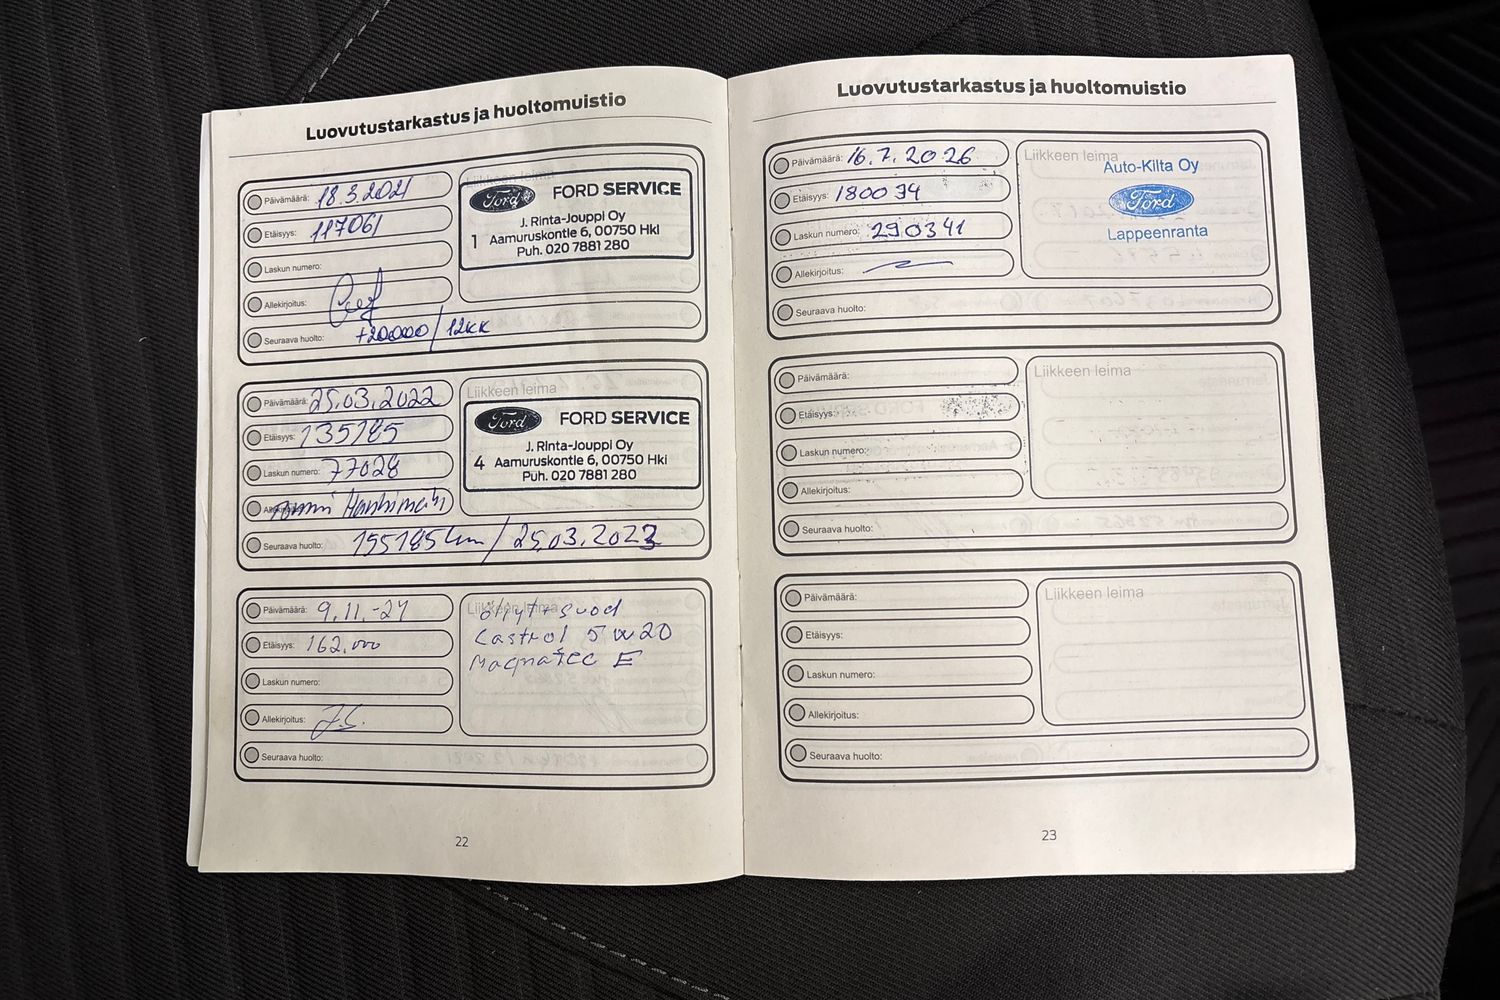 Luovutustarkastus ja huoltomuistio
Päivämäärä: 18.3.2021
Etäisyys: 117061
Laskun numero:
Allekirjoitus:
Seuraava huolto: +20000/12kk
Liikkeen leima
Ford FORD SERVICE
J. Rinta-Jouppi Oy
1 Aamuruskontie 6, 00750 Hki
Puh. 020 7881 280
Päivämäärä: 25.03.2022
Etäisyys: 135185
Laskun numero: 77028
Seuraava huolto: 155185km/25.03.2023
Liikkeen leima
Ford FORD SERVICE
J. Rinta-Jouppi Oy
4 Aamuruskontie 6, 00750 Hki
Puh. 020 7881 280
Päivämäärä: 9.11.-24
Etäisyys: 162.000
Laskun numero:
Allekirjoitus: J.S.
Seuraava huolto:
Liikkeen leima
öljyt+suod
Castrol 5w20
Magnatec E
22
Luovutustarkastus ja huoltomuistio
Päivämäärä: 16.7.2026
Etäisyys: 180034
Laskun numero: 290341
Allekirjoitus:
Seuraava huolto:
Liikkeen leima
Auto-Kilta Oy
Ford
Lappeenranta
Päivämäärä:
Etäisyys:
Laskun numero:
Allekirjoitus:
Seuraava huolto:
Liikkeen leima
Päivämäärä:
Etäisyys:
Laskun numero:
Allekirjoitus:
Seuraava huolto:
Liikkeen leima
23